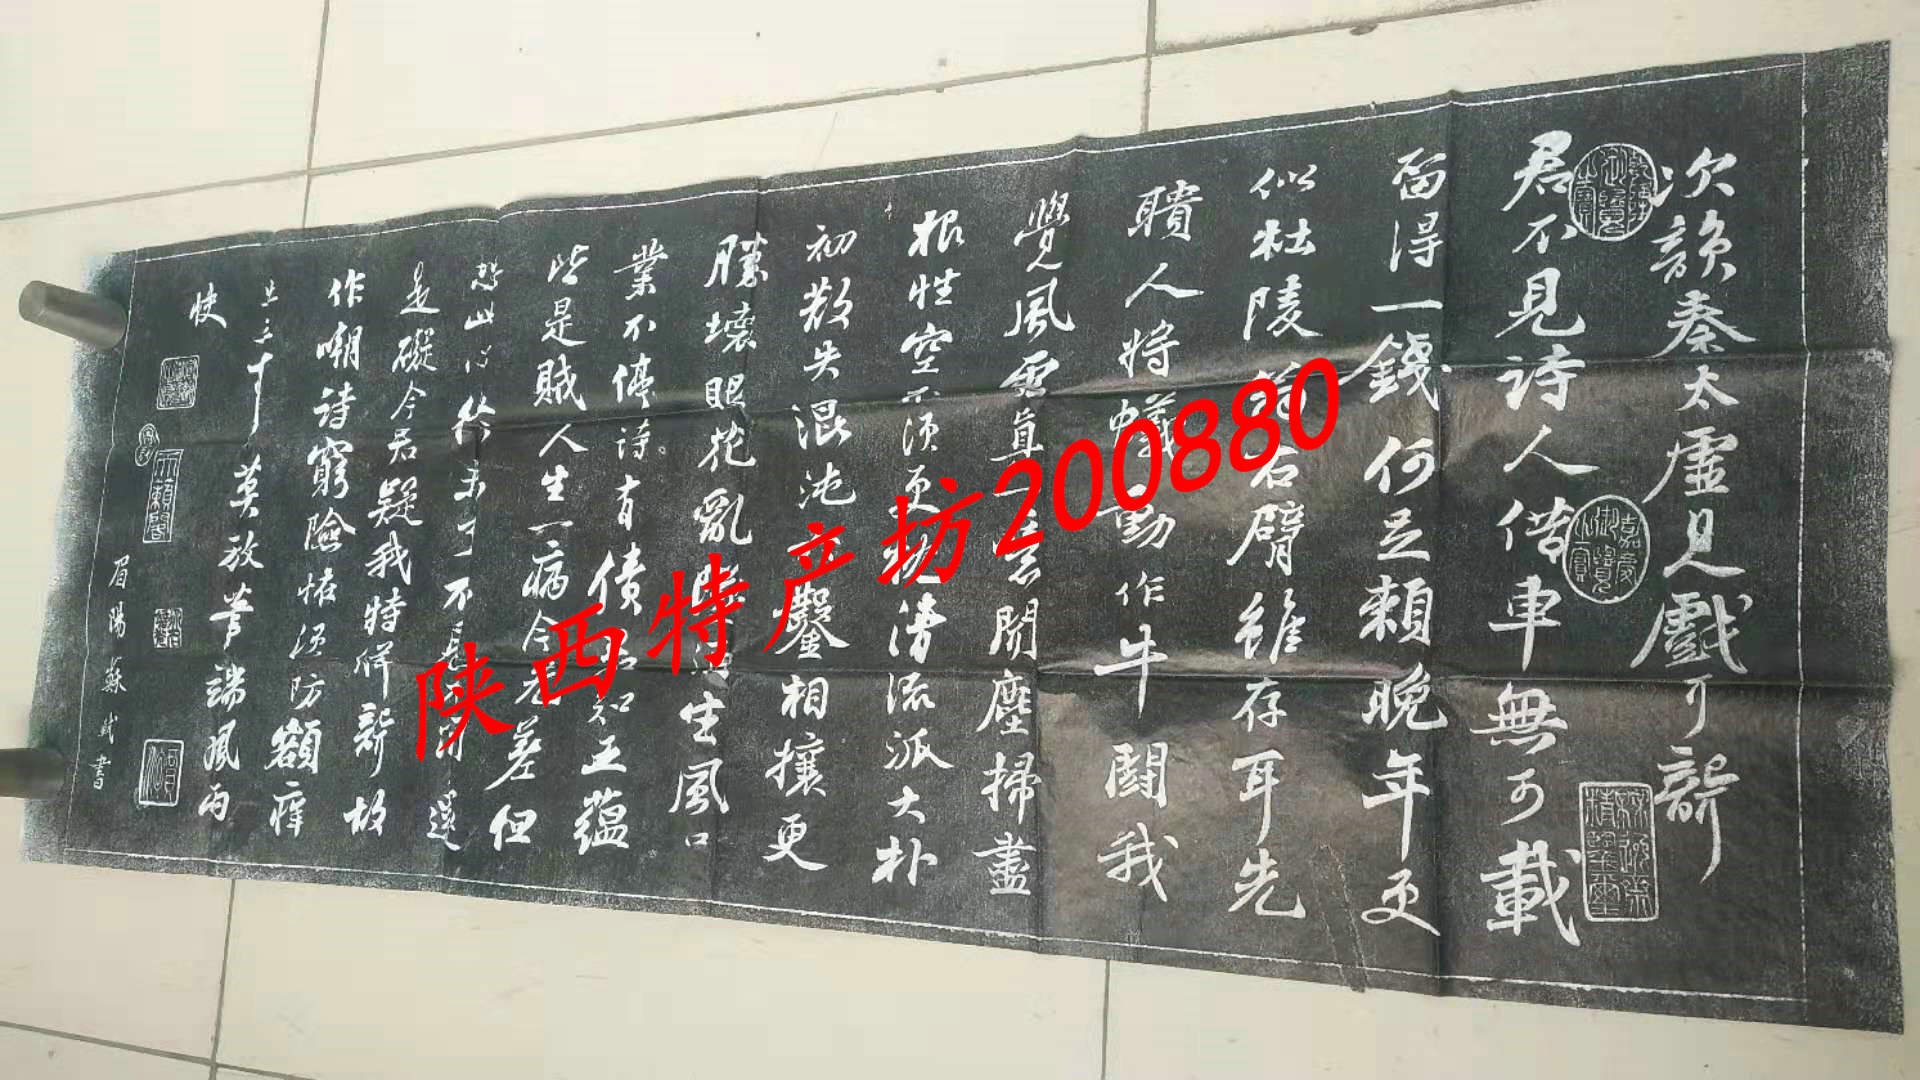 次韻秦太虛見戲耳聾
君不見詩人借車無可載
留得一錢何足賴晚年更
似杜陵翁右臂雖存耳先
聵人將蟻動作牛鬪我
覺風雷真一噫聞塵掃盡
根性空不須更枕清流派大朴
初散失混沌六鑿相攘更
勝壞眼花亂墜酒生風口
業不停詩有債君知五蘊
皆是賊人生一病今先差但
恐此心終未了不見不聞還
是礙今君疑我特佯聾故
作嘲詩窮險怪須防額癢
出三耳莫放筆端風雨
快
眉陽蘇軾書
陕西特产坊200880